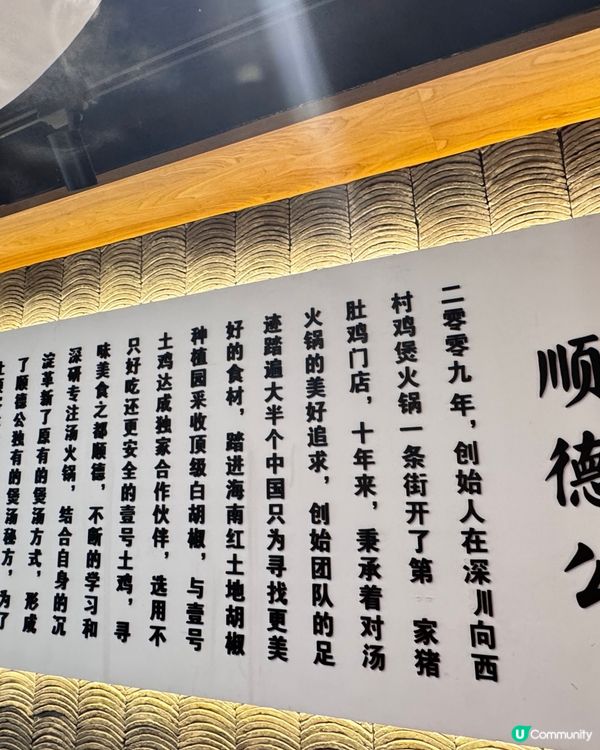 顺德公
二零零九年，创始人在深川向西
村鸡煲火锅一条街开了第 家猪
肚鸡门店，十年来，秉承着对汤
火锅的美好追求，创始团队的足
迹踏遍大半个中国只为寻找更美
好的食材，踏进海南红土地胡椒
种植园采收顶级白胡椒，与壹号
土鸡达成独家合作伙伴，选用不
只好吃还更安全的壹号土鸡，寻
味美食之都顺德，不断的学习和
深研专注汤火锅，结合自身的沉
淀革新了原有的煲汤方式，形成
了顺德公独有的煲汤秘方，为了
U Community